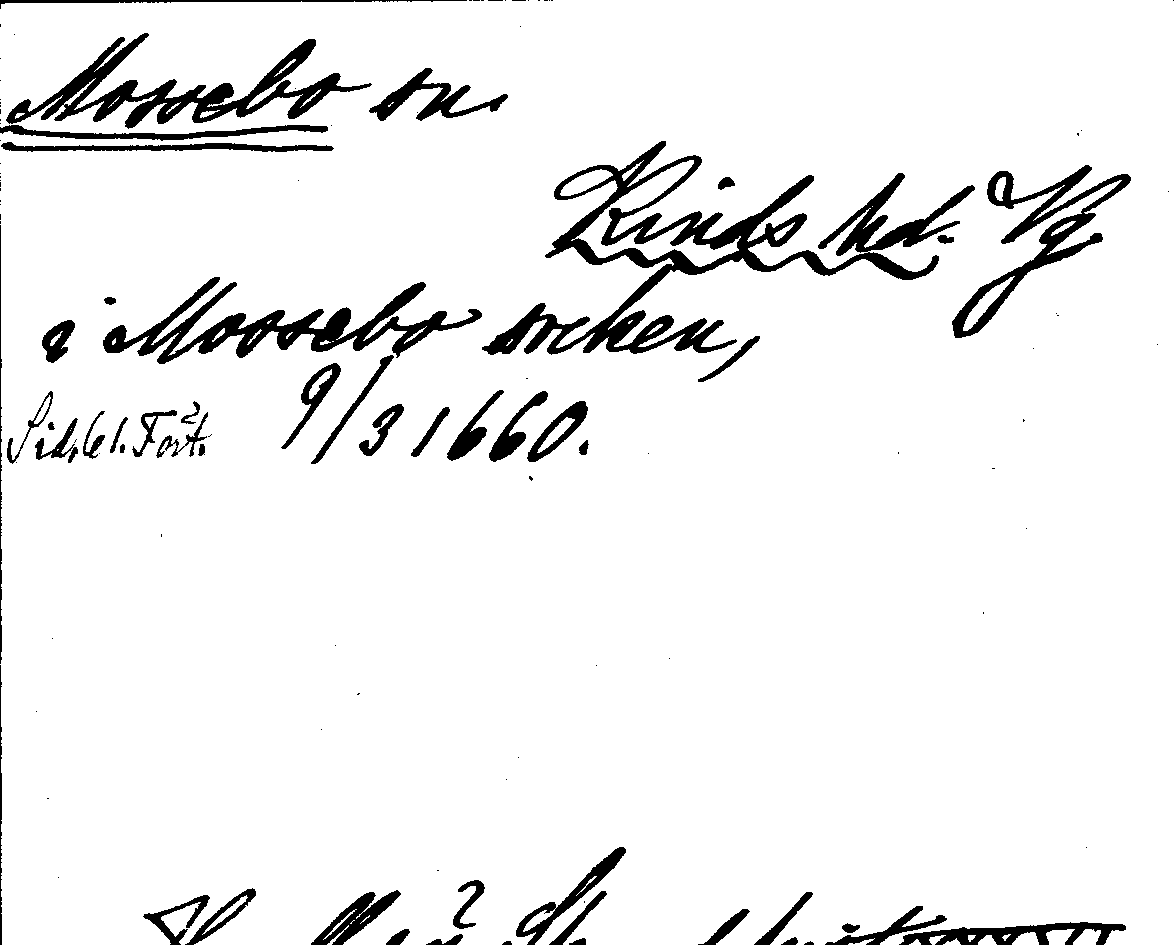 Mossebo sn.
Kinds hd. Vg.
i Mossebo socken,
Sid. 61. Fört. 9/3 1660.